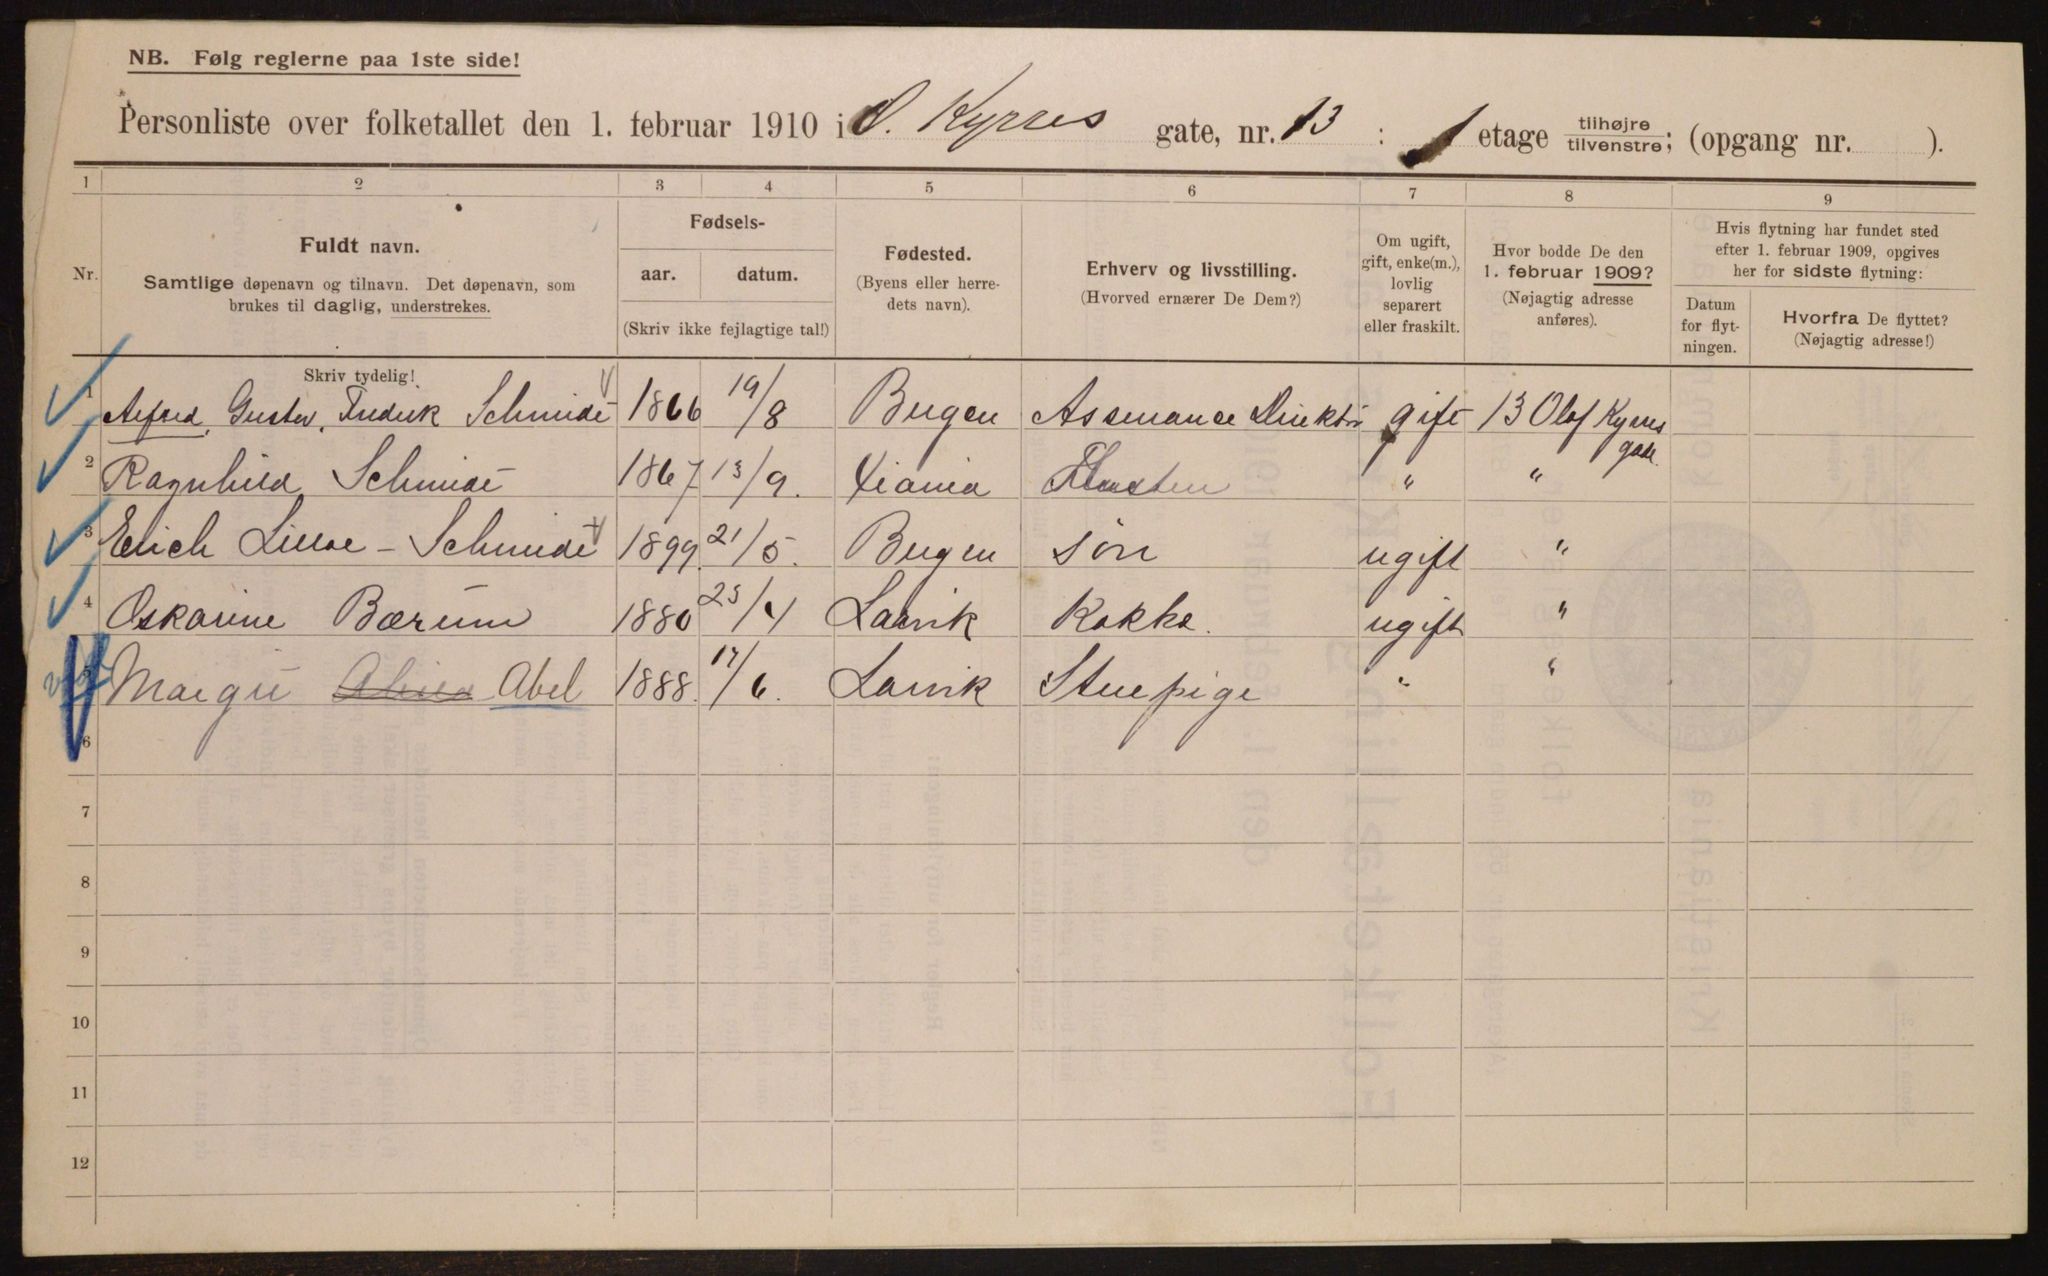 NB. Følg reglerne paa 1ste side!
Personliste over folketallet den 1. februar 1910 i O. Kyrres gate, nr. 13 : 1 etage tilhøjre/tilvenstre; (opgang nr. ).
1 2 3 4 5 6 7 8 9
Nr.
Fuldt navn.
Samtlige døpenavn og tilnavn. Det døpenavn, som
brukes til daglig, understrekes.
Skriv tydelig!
Fødsels-
aar. datum.
(Skriv ikke fejlagtige tal!)
Fødested.
(Byens eller herre-
dets navn).
Erhverv og livsstilling.
(Hvorved ernærer De Dem?)
Om ugift,
gift, enke(m.),
lovlig
separert
eller fraskilt.
Hvor bodde De den
1. februar 1909?
(Nøjagtig adresse
anføres).
Hvis flytning har fundet sted
efter 1. februar 1909, opgives
her for sidste flytning:
Datum
for flyt-
ningen.
Hvorfra De flyttet?
(Nøjagtig adresse!)
1 Alfred, Gustav, Fredrik Schmidt 1866 19/8 Bergen Assurance Direktør gift 13 Olaf Kyrres gade.
2 Ragnhild Schmidt 1867 13/9. Xiania Hustru " "
3 Erich Lilloe - Schmidt 1899. 21/5. Bergen søn ugift "
4 Oskarine Bærum 1880 23/4 Larvik Kokke. ugift "
5 Margit Abel 1888. 17/6. Larvik Stuepige " "
6
7
8
9
10
11
12